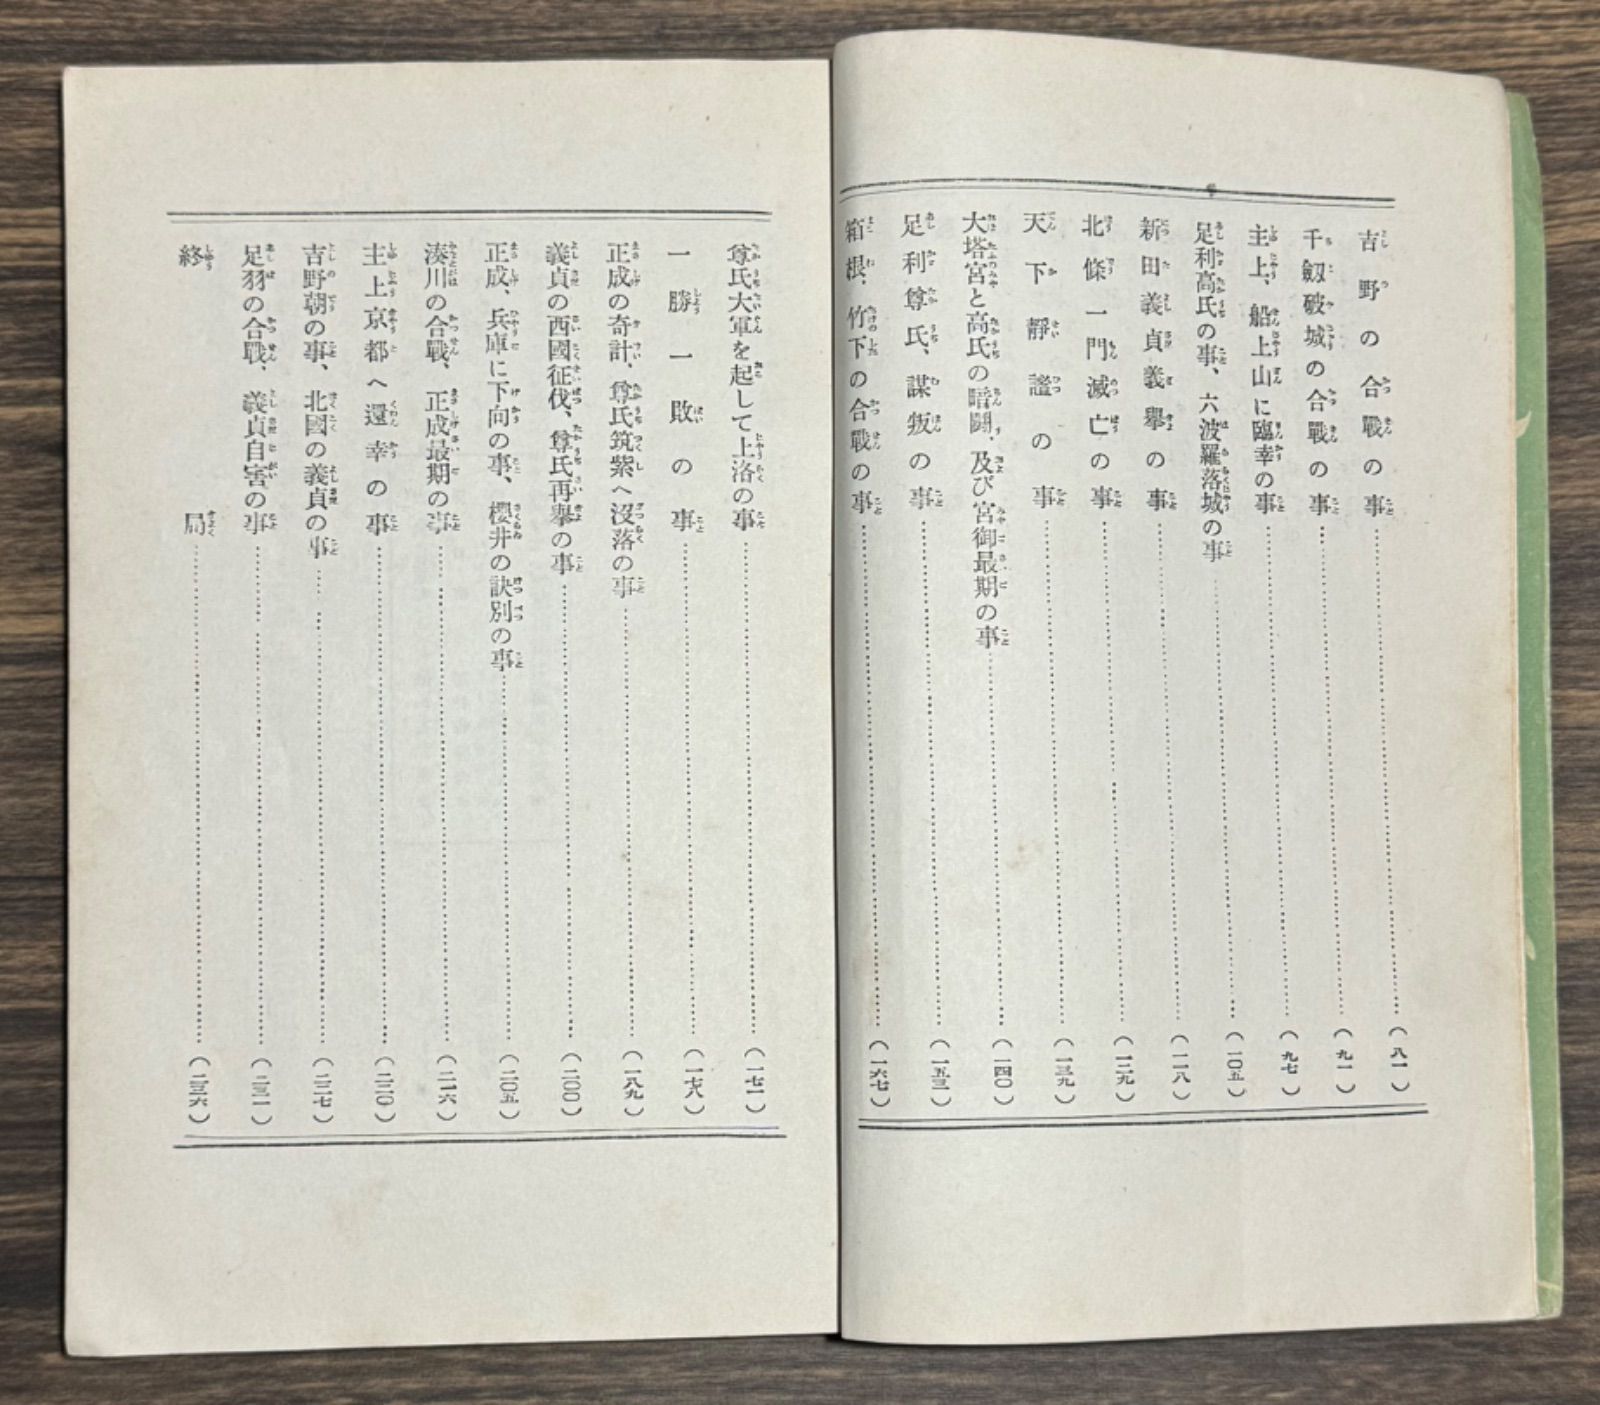 吉野の合戰の事……(八一)
千劔破城の合戰の事……(九一)
主上、船上山に臨幸の事……(九七)
足利高氏の事、六波羅落城の事……(一〇五)
新田義貞義擧の事……(一一八)
北條一門滅亡の事……(一二九)
天下靜謐の事……(一三九)
大塔宮と高氏の暗鬪、及び宮御最期の事……(一四〇)
足利尊氏、謀叛の事……(一五三)
箱根、竹下の合戰の事……(一六七)
尊氏大軍を起して上洛の事……(一七一)
一勝一敗の事……(一七八)
正成の奇計、尊氏筑紫へ沒落の事……(一八九)
義貞の西國征伐、尊氏再擧の事……(二〇〇)
正成、兵庫に下向の事、櫻井の訣別の事……(二〇五)
湊川の合戰、正成最期の事……(二一六)
主上京都へ還幸の事……(二二〇)
吉野朝の事、北國の義貞の事……(二二七)
足羽の合戰、義貞自害の事……(二三一)
終局……(二三六)